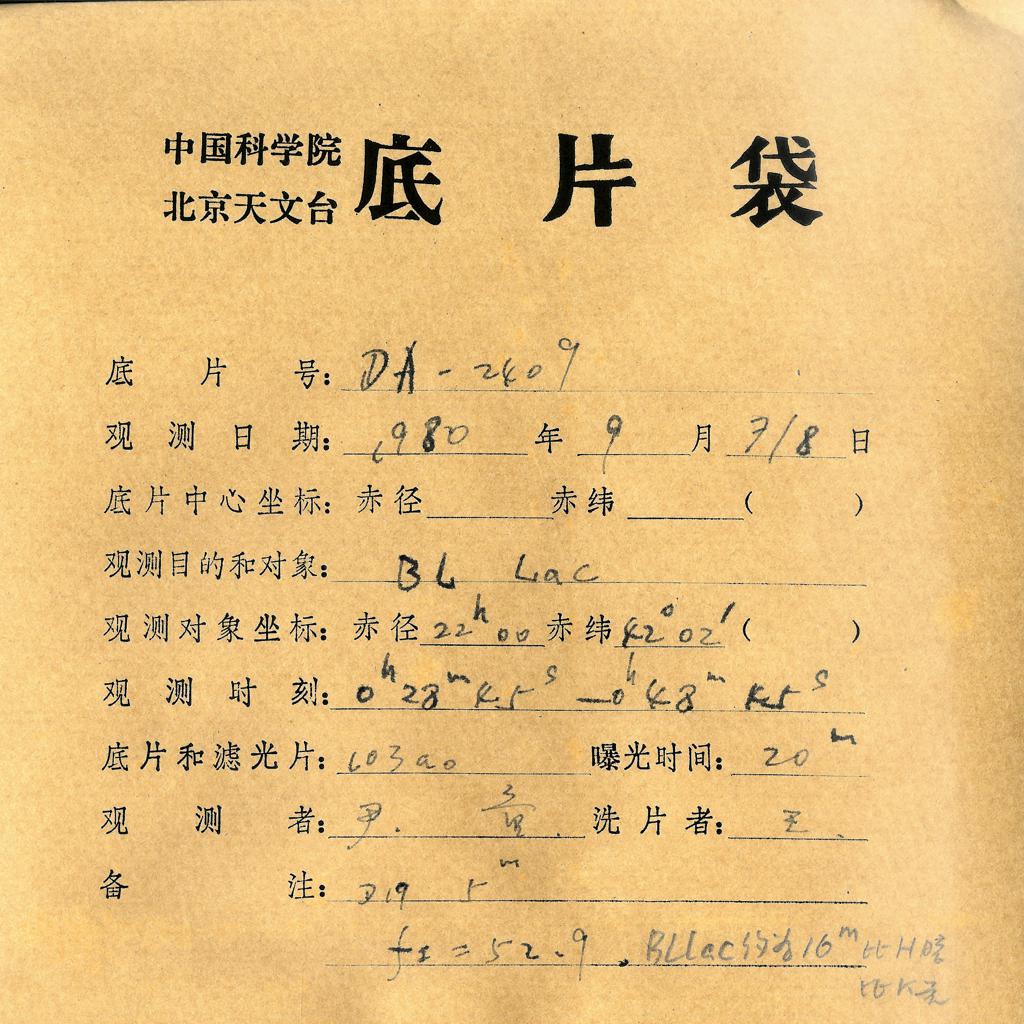 中国科学院
北京天文台
底片袋
底片号: DA-2409
观测日期: 1980 年 9 月 7/8 日
底片中心坐标: 赤径 赤纬 ( )
观测目的和对象: BL Lac
观测对象坐标: 赤径 22h00 赤纬 42°02′ ( )
观测时刻: 0h28m45s—0h48m45s
底片和滤光片: 103aO 曝光时间: 20m
观测者: 尹. 洗片者: 王.
备注: 5m
= 52.9. BLLac约为16m 比H暗
比K亮